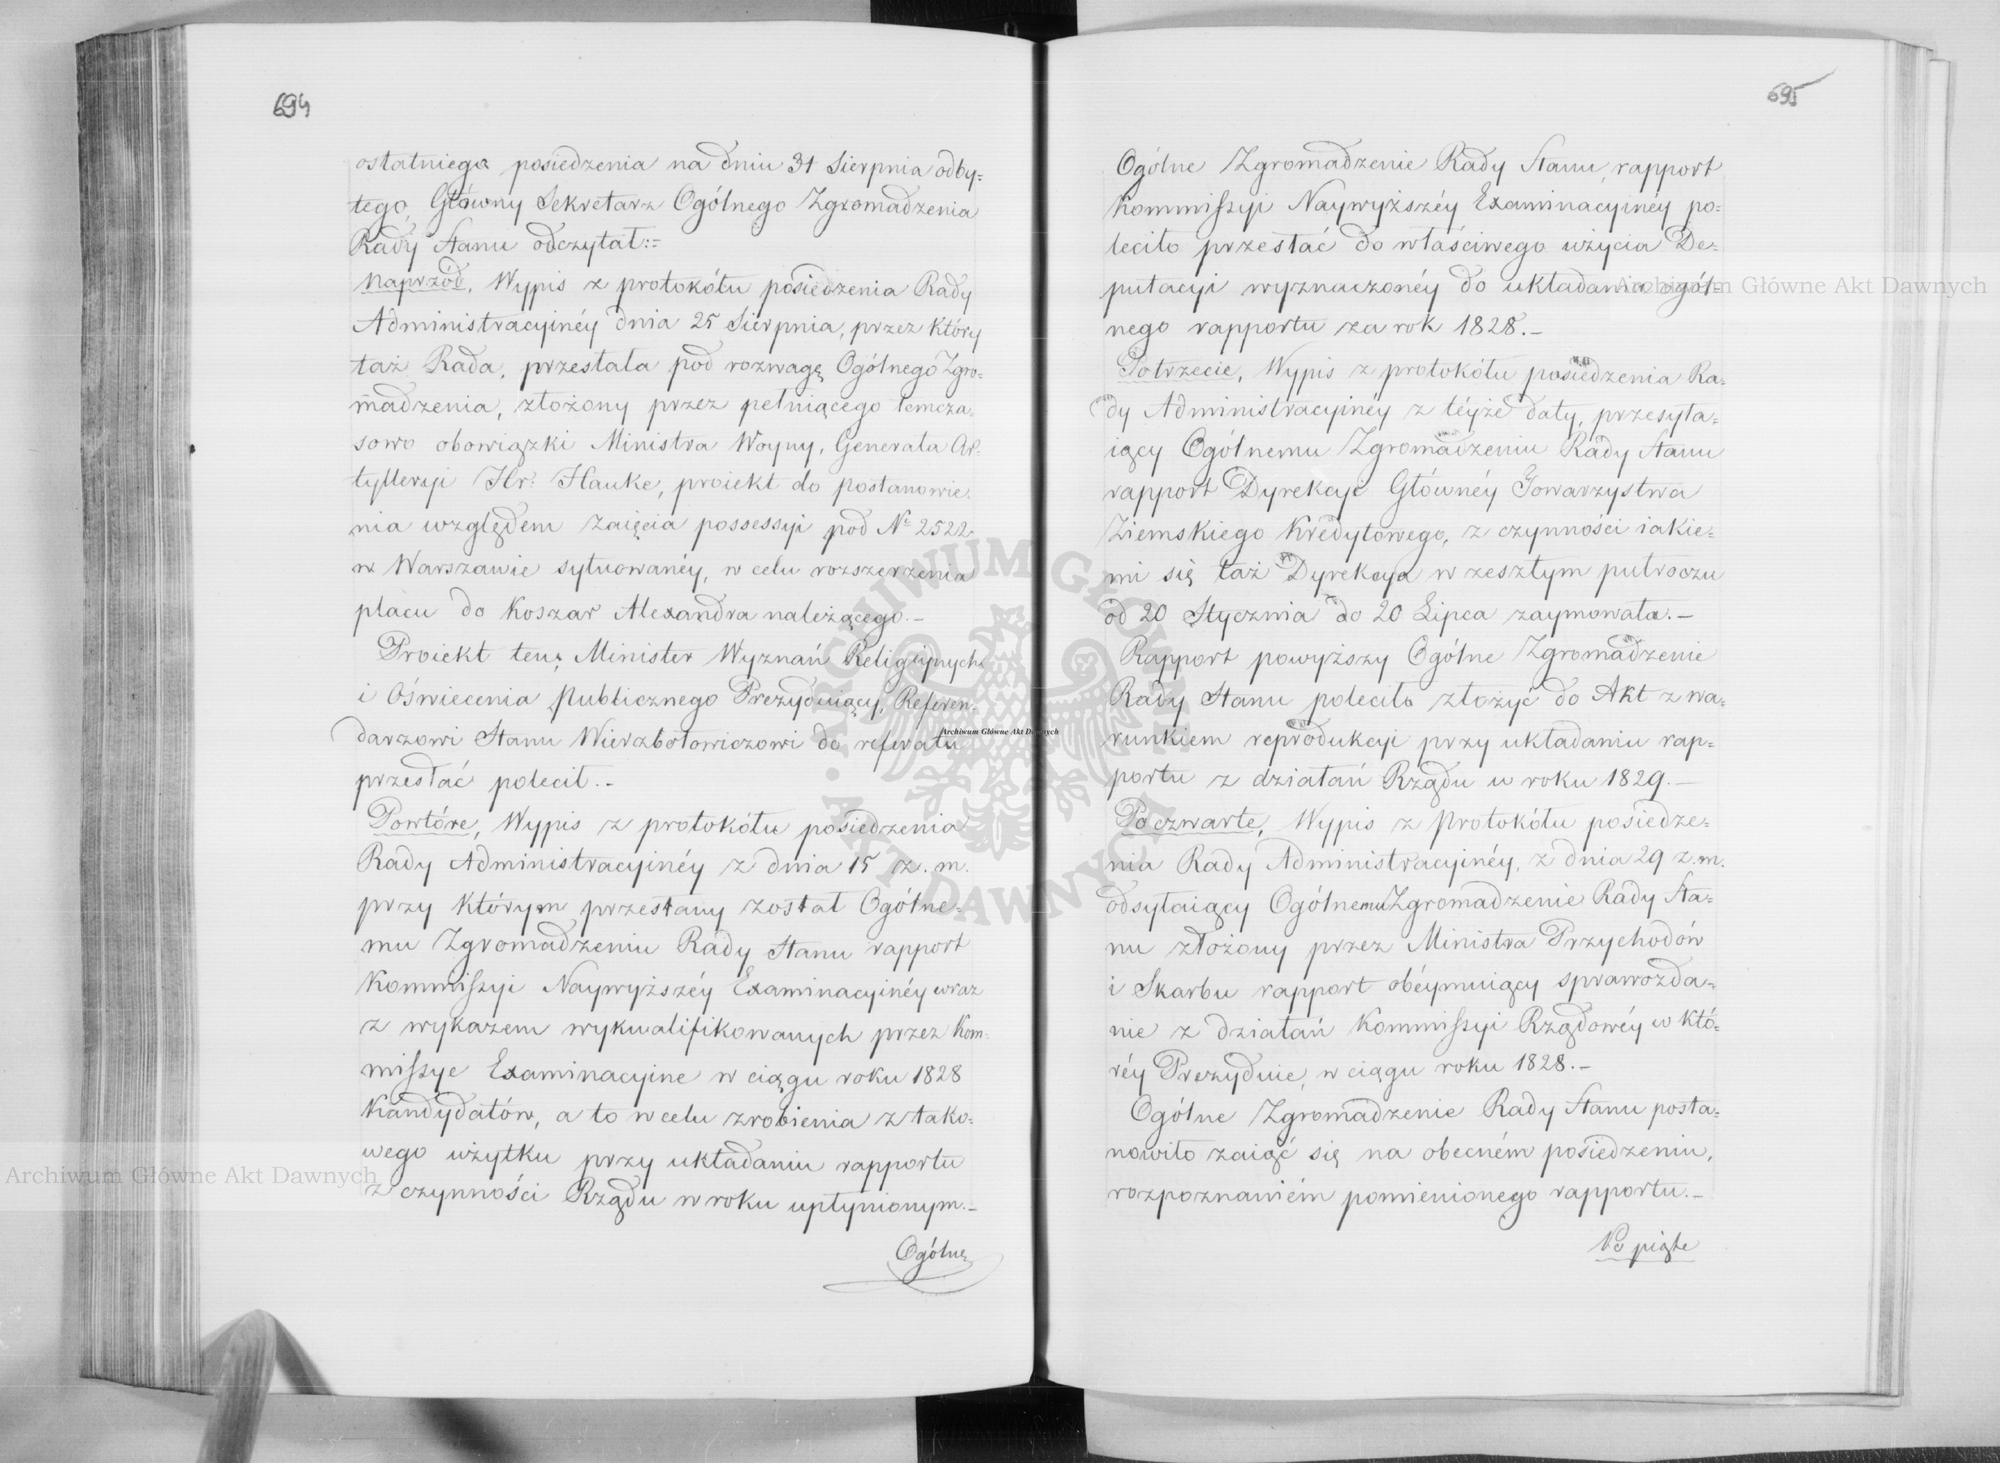 694
ostatniego posiedzenia na dniu 31 Sierpnia odby=
tego, Główny Sekretarz Ogólnego Zgromadzenia
Rady Stanu odczytał:=
Naprzód, Wypis z protokółu posiedzenia Rady
Administracyinéy dnia 25 Sierpnia, przez który
taż Rada, przesłała pod rozwagę Ogólnego Zgro=
madzenia, złożony przez pełniącego temcza=
sowo obowiązki Ministra Woyny, Generała Ar=
tylleryi Hr. Hauke, proiekt do postanowie=
nia względem zaięcia possessyi pod No 2522
w Warszawie sytuowanéy, w celu rozszerzenia
placu do Koszar Alexandra należącego.—
Proiekt ten, Minister Wyznań Religiynych
i Oświecenia Publicznego Prezyduiący, Referen=
darzowi Stanu Wierzbołowiczowi do referatu
przesłać polecił.—
Powtóre, Wypis z protokółu posiedzenia
Rady Administracyinéy z dnia 15 z. m.
przy którym przesłany został Ogólne=
mu Zgromadzeniu Rady Stanu rapport
Kommissyi Naywyższéy Examinacyinéy wraz
z wykazem wykwalifikowanych przez Kom=
missye Examinacyine w ciągu roku 1828
Kandydatów, a to w celu zrobienia z tako=
wego użytku przy układaniu rapportu
z czynności Rządu w roku upłynionym.—
Ogólne
695
Ogólne Zgromadzenie Rady Stanu, rapport
Kommissyi Naywyższéy Examinacyinéy po=
leciło przesłać do właściwego użycia De=
putacyi wyznaczonéy do układania ogól=
nego rapportu za rok 1828.—
Potrzecie, Wypis z protokółu posiedzenia Ra=
dy Administracyinéy z téyże daty, przesyła=
iący Ogólnemu Zgromadzeniu Rady Stanu
rapport Dyrekcyi Głównéy Towarzystwa
Ziemskiego Kredytowego, z czynności iakie=
mi się taż Dyrekcya w zeszłym półroczu
od 20 Stycznia do 20 Lipca zaymowała.—
Rapport powyższy Ogólne Zgromadzenie
Rady Stanu poleciło złożyć do Akt z wa=
runkiem reprodukcyi przy układaniu rap=
portu z działań Rządu w roku 1829.—
Poczwarte, Wypis z protokółu posiedze=
nia Rady Administracyinéy, z dnia 29 z. m.
odsyłaiący Ogólnemu Zgromadzenie Rady Sta=
nu złożony przez Ministra Przychodów
i Skarbu rapport obéymuiący sprawozda=
nie z działań Kommissyi Rządowéy w któ=
réy Prezyduie, w ciągu roku 1828.—
Ogólne Zgromadzenie Rady Stanu posta=
nowiło zaiąć się na obecném posiedzeniu,
rozpoznaniém pomienionego rapportu.—
Po piąte
Archiwum Główne Akt Dawnych
Archiwum Główne Akt Dawnych
Archiwum Główne Akt Dawnych
ARCHIWUM GŁÓWNE AKT DAWNYCH